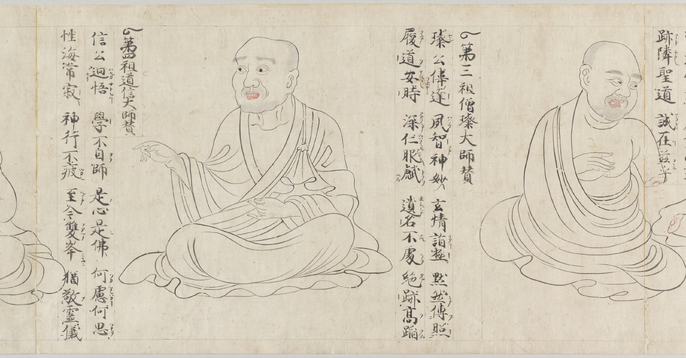 跡隣聖道 誠在茲乎
第三祖僧璨大師賛
璨公偉達 夙智神妙 玄情諧極 黙然傳照
履道安時 深仁眼 遺名不處 絶跡高蹈
第四祖道信大師賛
信公迥悟 學不自師 是心是佛 何慮何思
性海常寂 神行不疲 至今雙峯 猶敬靈儀